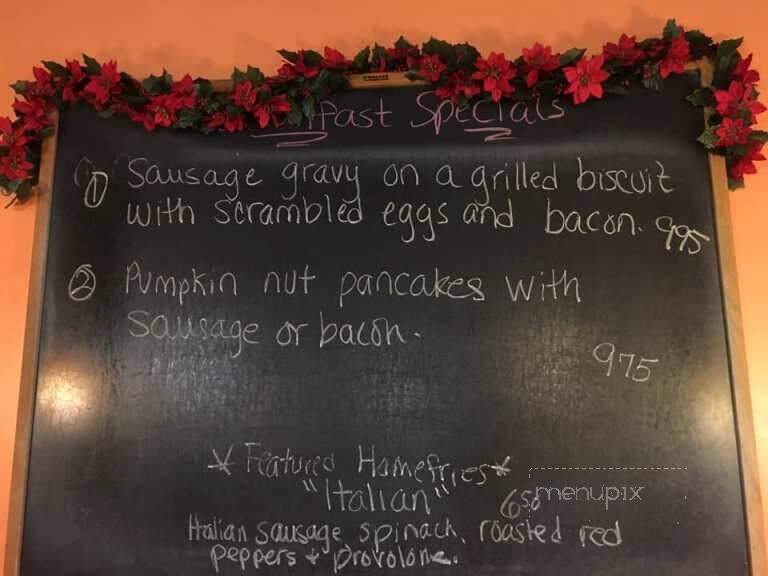 fast Specials
① Sausage gravy on a grilled biscuit
with scrambled eggs and bacon. 995
② Pumpkin nut pancakes with
sausage or bacon.
975
* Featured Homefries *
"Italian" 650
menupix
Italian sausage, spinach, roasted red
peppers + provolone.